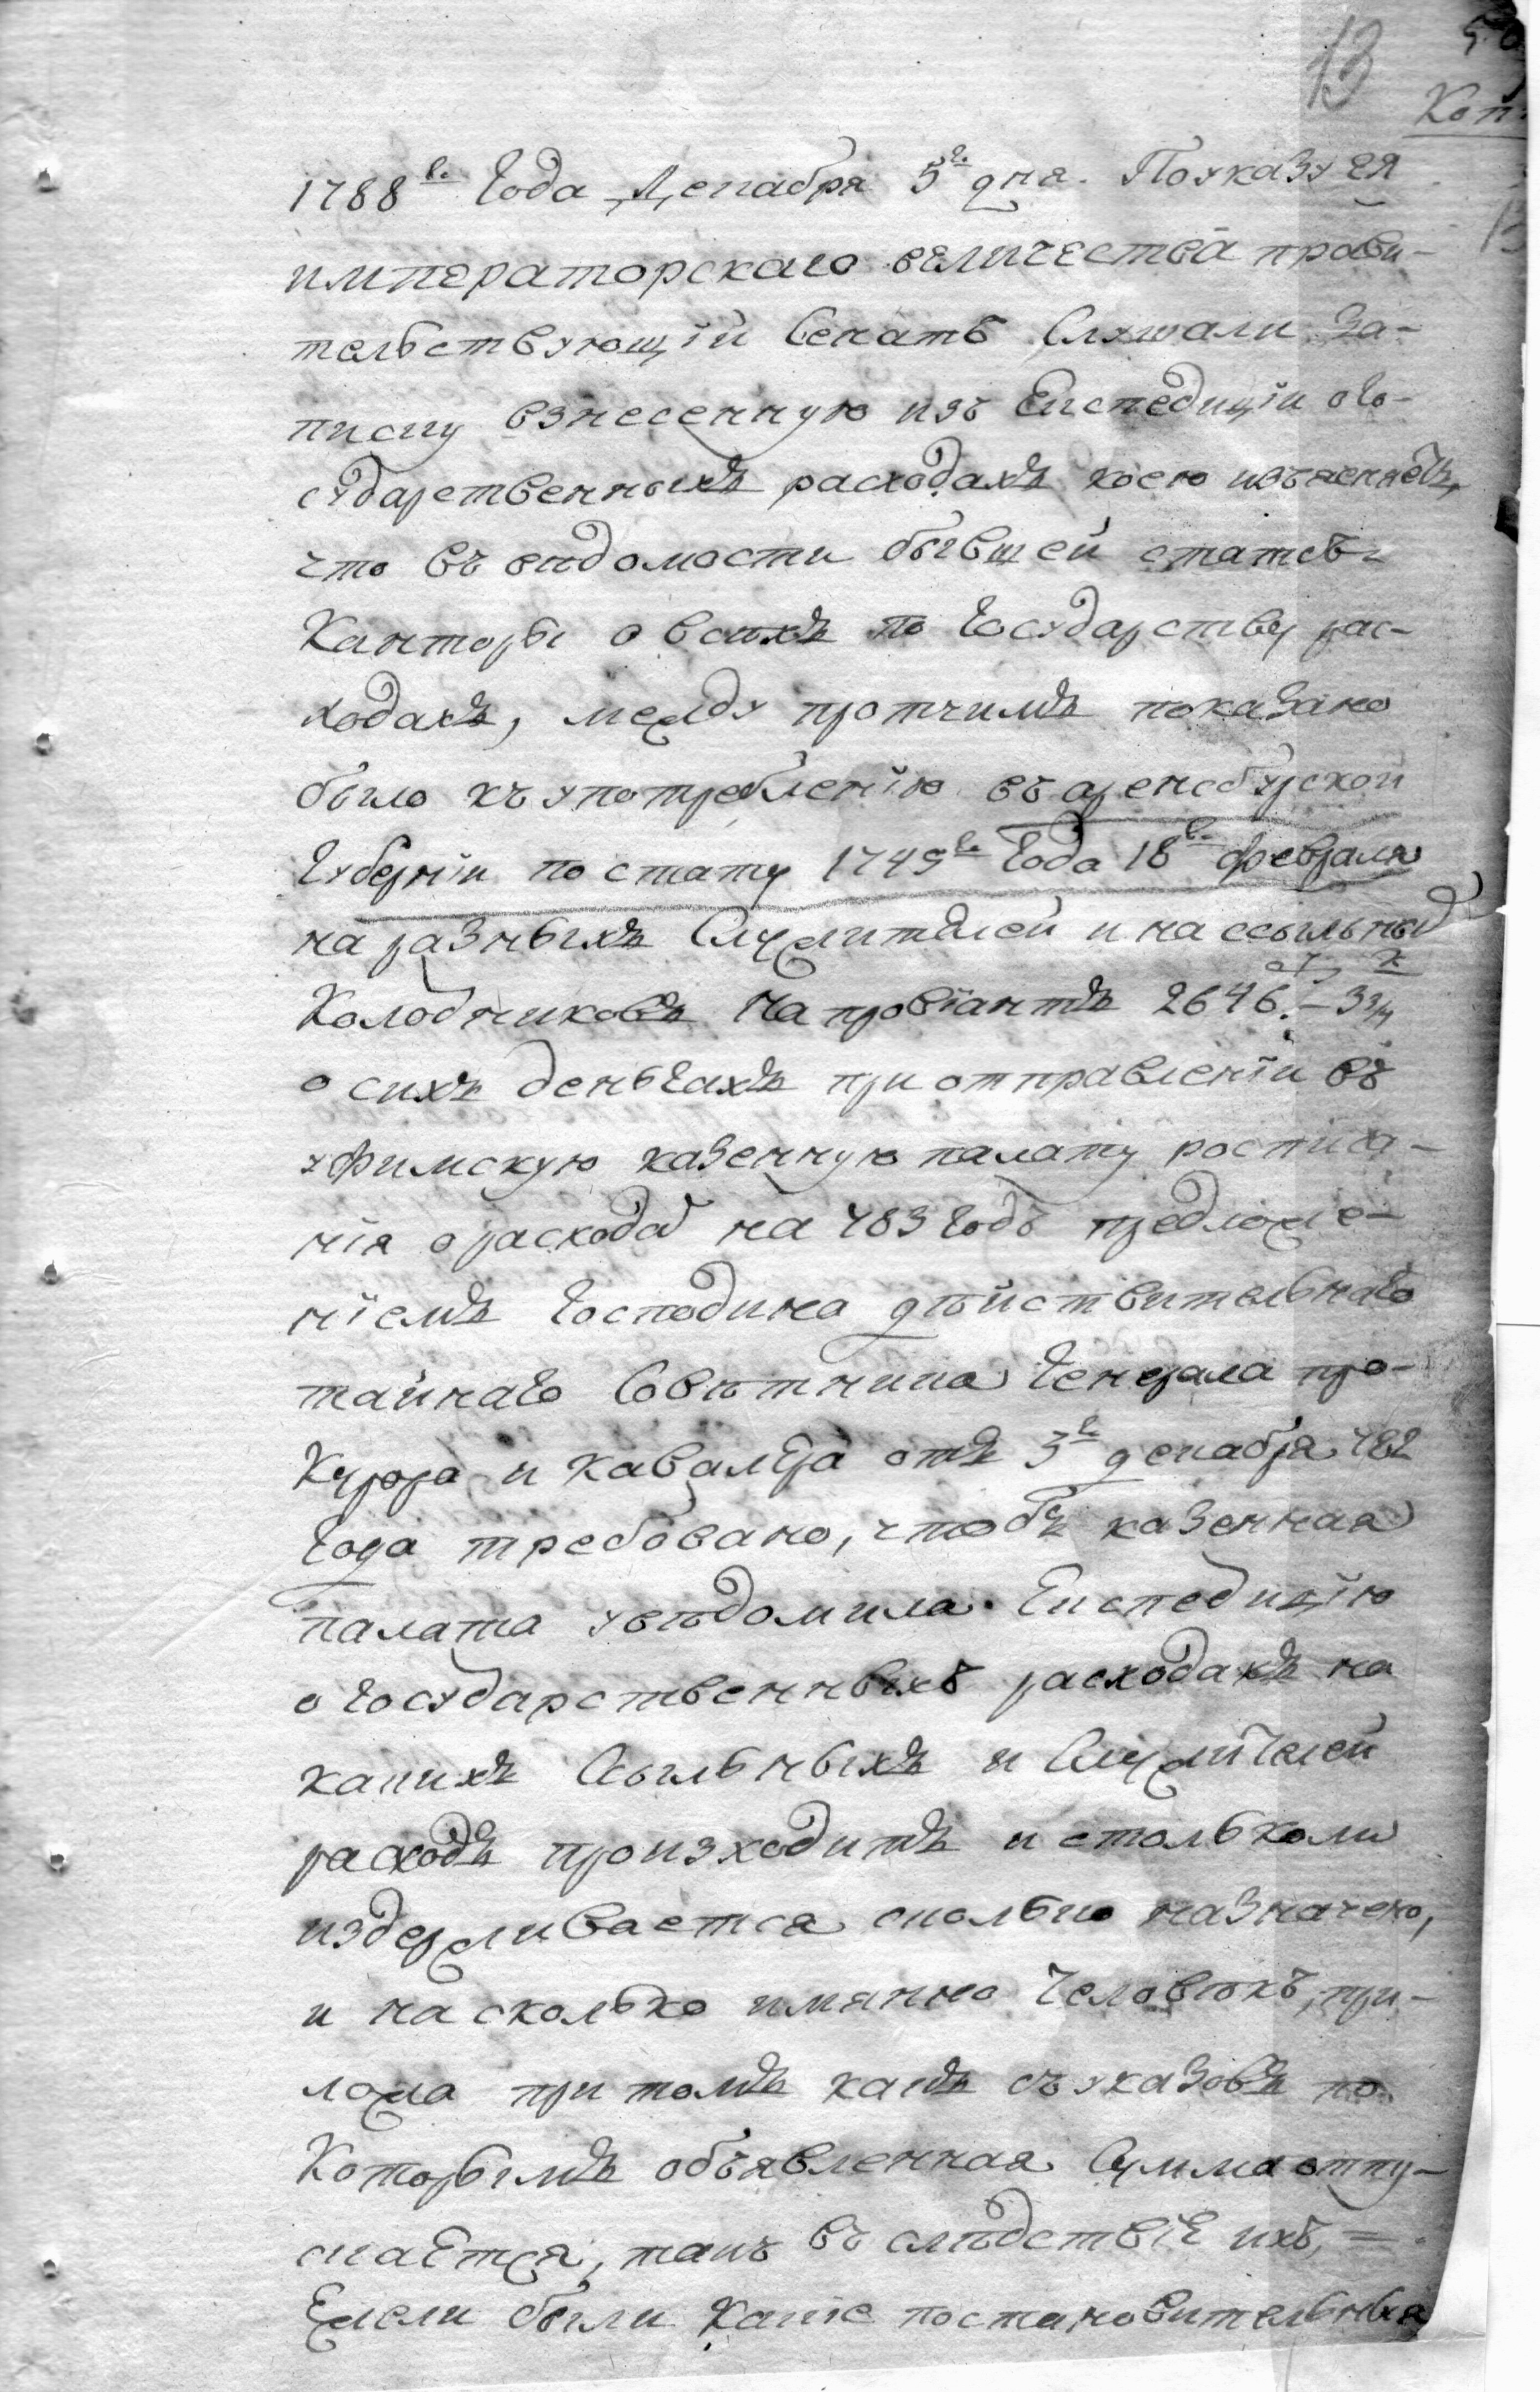 13
50
Коп
1788г. Года Декабря 5г. дня. Поуказу ея
императорскаго величества прави-
тельствующiи Сенатъ Слушали за-
писку взнесенную изъ Експедицiи о го-
сударственныхъ расходахъ коею изъясняетъ,
что въ ведомости бывшей статсъ-
Канторы о всѣхъ по Государству рас-
ходахъ, между протчимъ показано
было къ употребленiю въ аренсбурской
Губернiи по стату 1749г. Года 18г. февраля
на разныхъ Служителей и на ссыльныхъ
Колодниковъ на провiантъ 2646. – 3 3/4
о сихъ деньгахъ при отправленiи въ
уфимскую казенную палату росписа-
нiя о расходахъ на 783 Годъ предложе-
нiемъ Господина дѣйствительнаго
тайнаго Совѣтника Генерала про-
Курора и кавалера отъ 3г. декабря 782
Года требовано, чтобъ казенная
палата увѣдомила Експедицiю
о Государственныхъ расходахъ на
какихъ Сыльныхъ и Служителей
расходъ произходитъ и столь коли
издерживается сколько назначено,
и на сколько имянно Человѣкъ, при-
ложа при томъ какъ съ указовъ по
Которымъ объявленная Сумма отпу-
скается, такъ въ слѣдствiе ихъ, =
Ежели были Какiе постановительныя